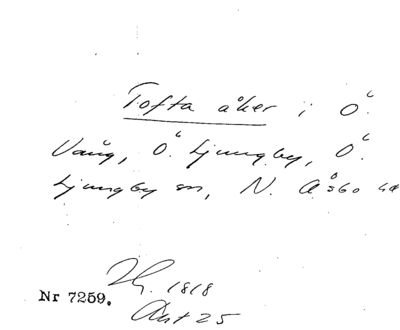 Tofta åker i Ö.
Vång, Ö. Ljungby, Ö.
Ljungby sn, N. Åsbo hd
Nr 7259.
1818
Akt 25